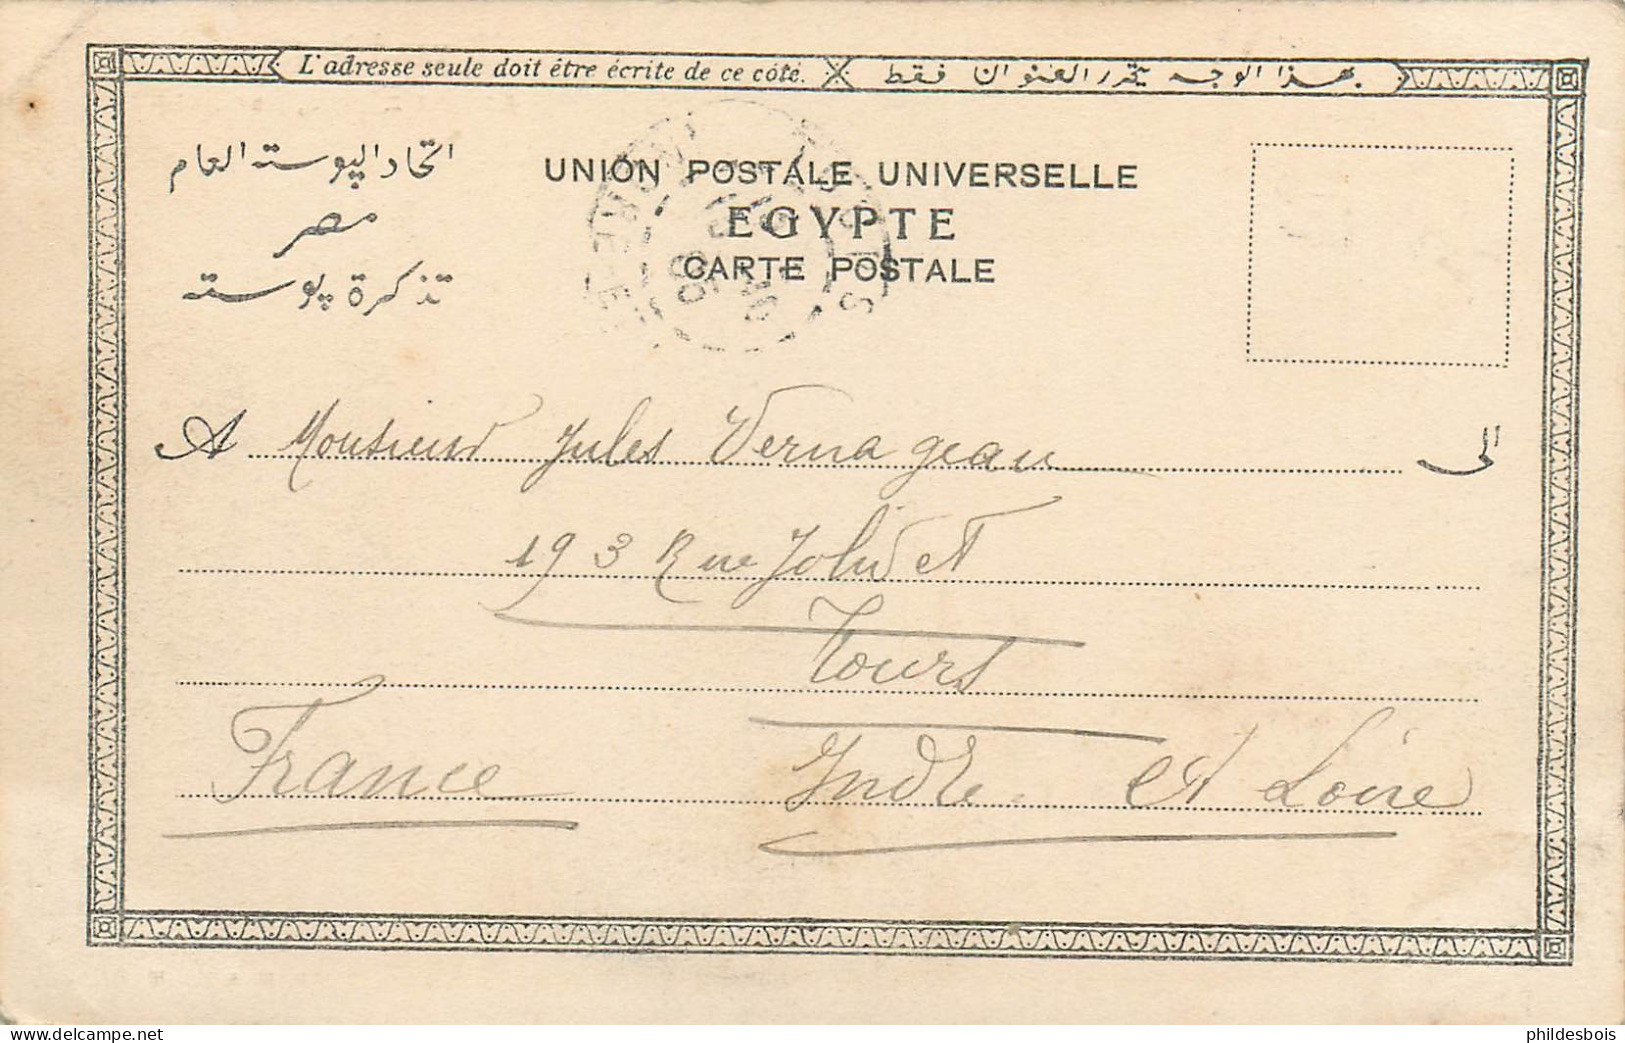 L'adresse seule doit être écrite de ce côté. بهذا الوجه يتحرر العنوان فقط
اتحاد البوسته العام
مصر
تذكرة پوسته
UNION POSTALE UNIVERSELLE
EGYPTE
CARTE POSTALE
A Monsieur Jules Vernageau الى
193 Rue Jolivet
Tours
France Indre et Loire
www.delcampe.net
phildesbois